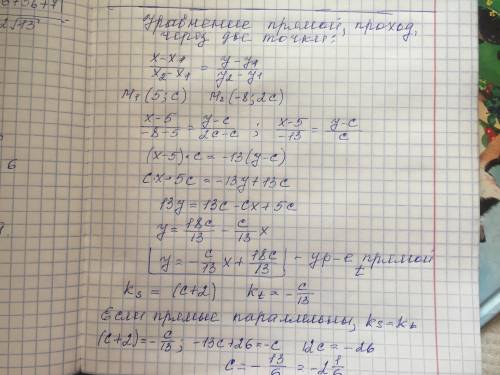 2√13
6
Уравнение прямой, проход.
через две точки:
x-x₁/x₂-x₁ = y-y₁/y₂-y₁
M₁(5;c) M₂(-8;2c)
x-5/-8-5 = y-c/2c-c ; x-5/-13 = y-c/c
(x-5)·c = -13(y-c)
cx-5c = -13y+13c
13y = 13c-cx+5c
y = 18c/13 - c/13 x
[y = -c/13 x + 18c/13] - ур-е прямой t
kₛ = (c+2) kₜ = -c/13
Если прямые параллельны, kₛ=kₜ
(c+2) = -c/13; -13c+26=-c 12c=-26
c = -13/6 = -2 1/6